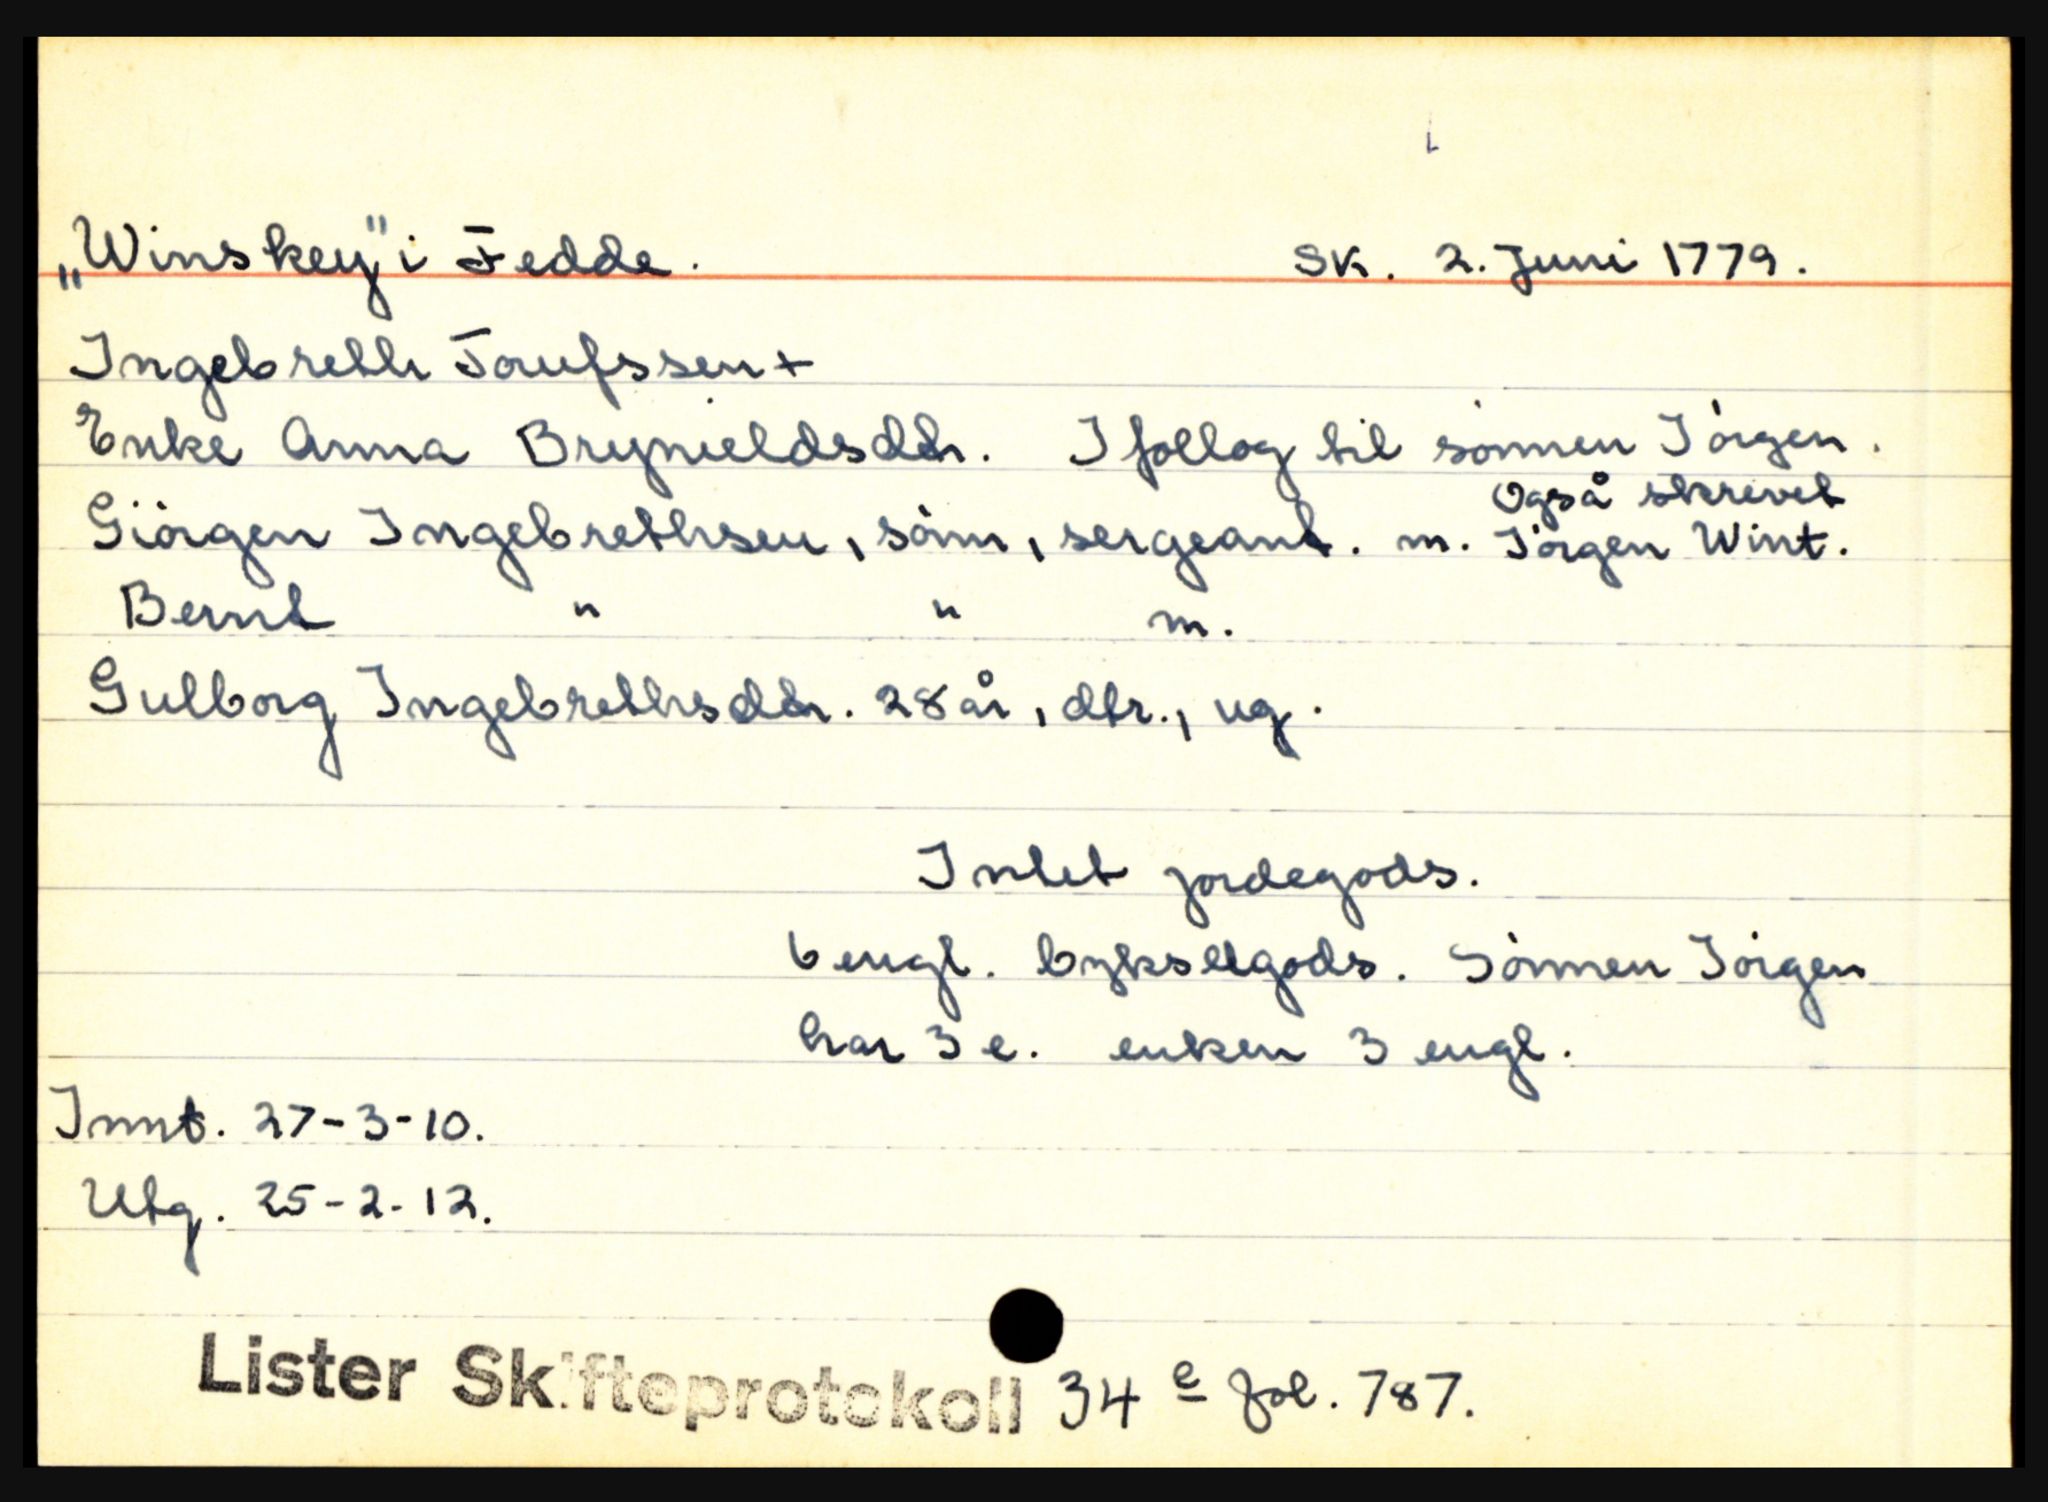 „Winskey" i Fedde. Sk. 2. Juni 1779.
Ingebreth Toufssen +
Enke Anna Brynieldsdtr. I følög til sönnen Jörgen.
Også skrevet
Giörgen Ingebrethsen, sönn, sergeant. m. Jörgen Wint.
Bernt " " m.
Gulborg Ingebrethsdtr. 28 år, dtr., ug.
Intet jordegods.
6 engl. bykselgods. Sönnen Jörgen
har 3 e. enken 3 engl.
Innt. 27-3-10.
Utg. 25-2-12.
Lister Skifteprotokoll 34 e fol. 787.